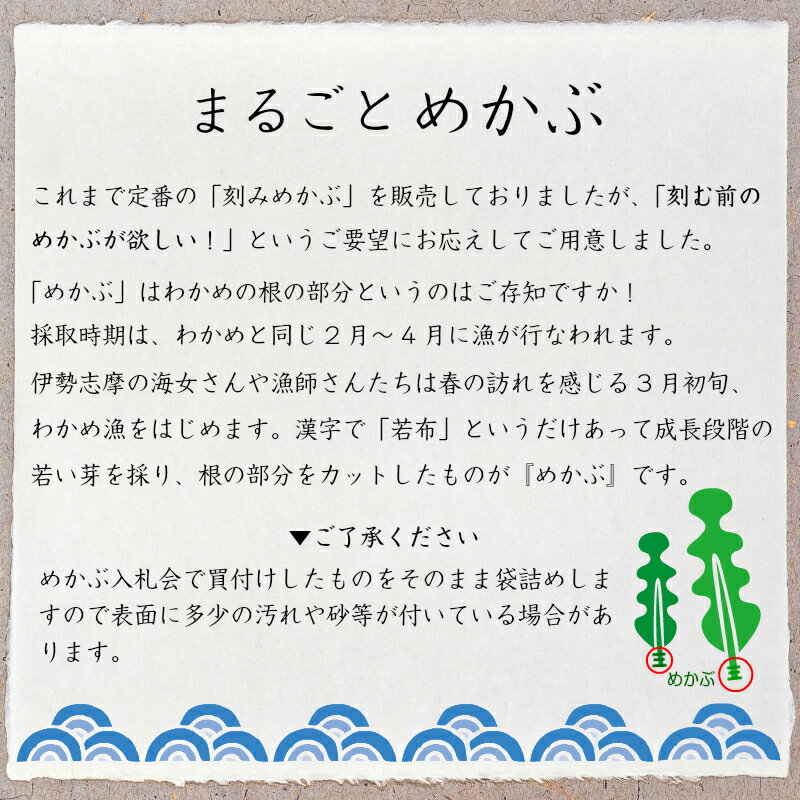 まるごと めかぶ
これまで定番の「刻みめかぶ」を販売しておりましたが、「刻む前の
めかぶが欲しい！」というご要望にお応えしてご用意しました。
「めかぶ」はわかめの根の部分というのはご存知ですか！
採取時期は、わかめと同じ２月～４月に漁が行なわれます。
伊勢志摩の海女さんや漁師さんたちは春の訪れを感じる３月初旬、
わかめ漁をはじめます。漢字で「若布」というだけあって成長段階の
若い芽を採り、根の部分をカットしたものが『めかぶ』です。
▼ご了承ください
めかぶ入札会で買付けしたものをそのまま袋詰めしま
すので表面に多少の汚れや砂等が付いている場合があ
ります。
めかぶ